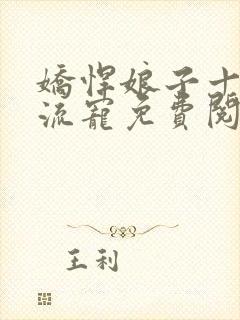 嬌悍娘子十
流寵免費閱
王利